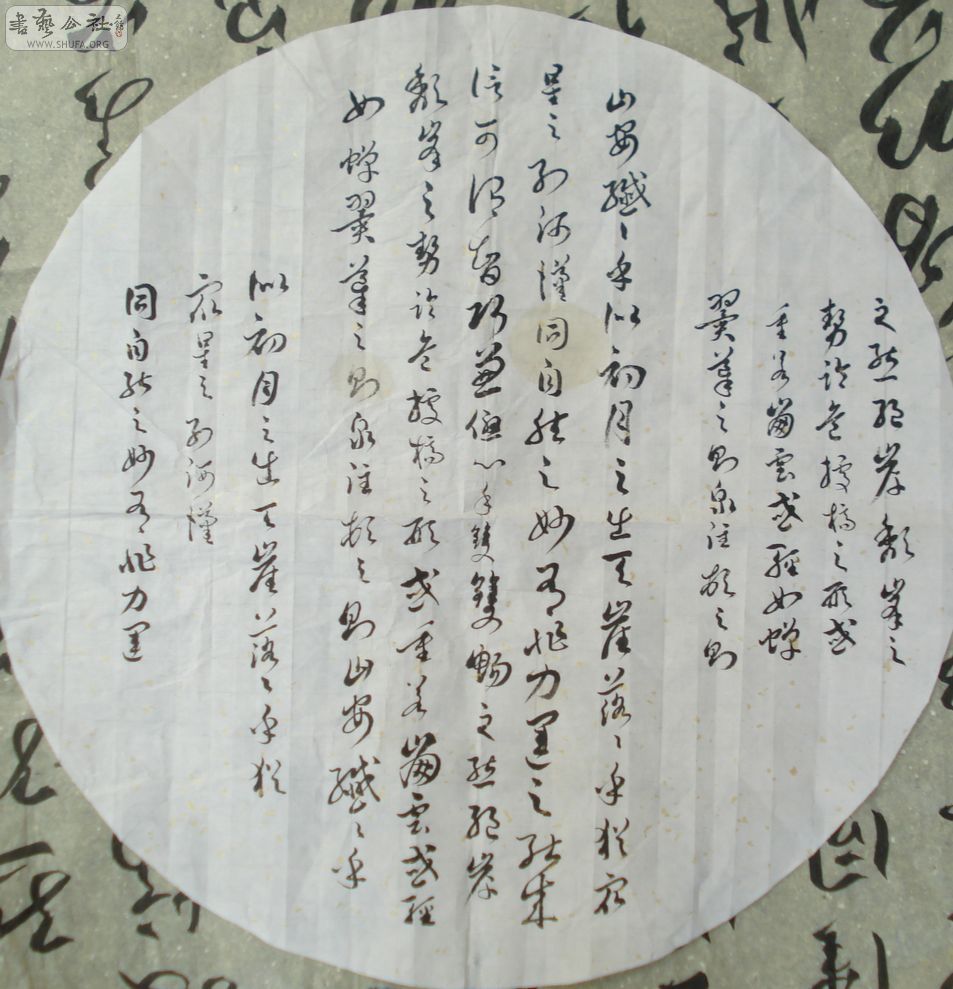 書藝公社
WWW.SHUFA.ORG
之態絕岸頹峯之
勢臨危據槁之形或
重若崩雲或輕如蟬
翼導之則泉注頓之則
山安纖〻乎似初月之出天崖落〻乎猶眾
星之列河漢同自然之妙有非力運之能成
信可謂智巧兼優心手雙雙暢之態絕岸
頹峯之勢臨危據槁之形或重若崩雲或輕
如蟬翼導之則泉注頓之則山安纖〻乎
似初月之出天崖落〻乎猶
眾星之列河漢
同自然之妙有非力運